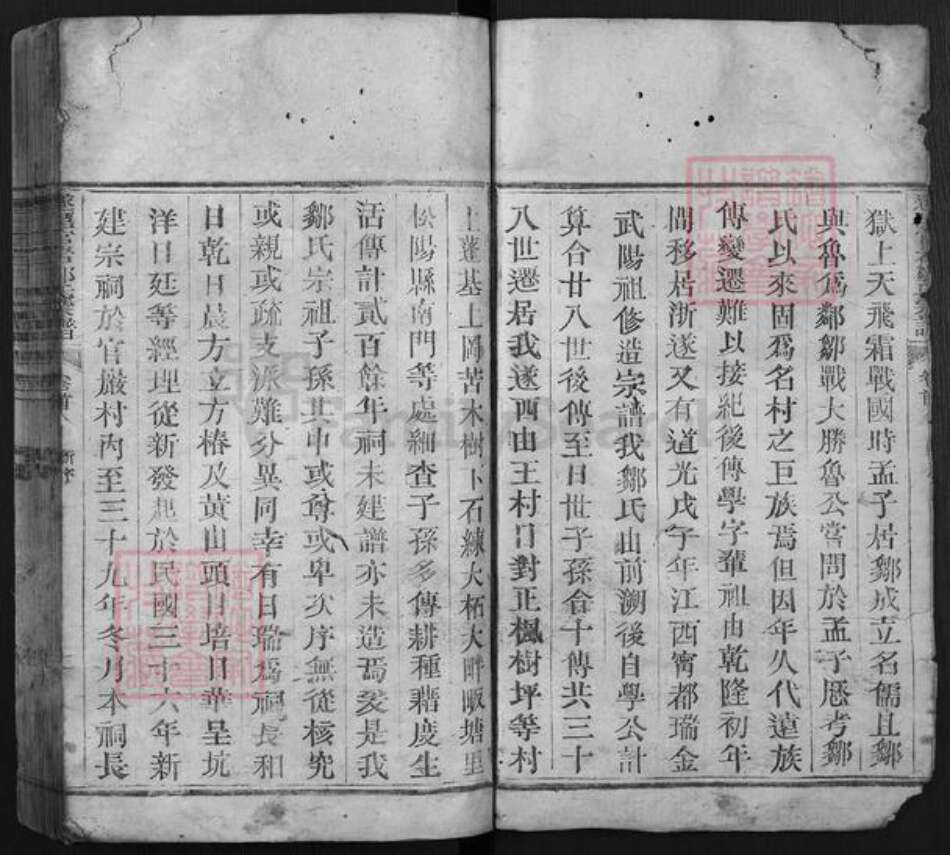 獄上天飛霜戰國時孟子居鄒成立名儒且鄒
與魯爲鄰鄒戰大勝魯公嘗問於孟子歷考鄒
氏以來固爲名村之巨族焉但因年久代遠族
傳變遷難以接紀後傳學字輩祖由乾隆初年
間移居浙遂又有道光戊午年江西甯都瑞金
武陽祖修造宗譜我鄒氏由前溯後自學公計
算合廿八世後傳至日世子孫會十傳共三十
八世遷居我遂西由王村口對正楓樹坪等村
上蓬基上岡苦木樹下石練大柘大畔畈塘里
松陽縣南門等處細查子孫多傳耕種藉度生
活傳計貳百餘年祠未建譜亦未造焉爰是我
鄒氏宗祖子孫其中或尊或卑次序無從核究
或親或疏支派難分異同幸有日瑞爲祠長和
日乾日晨方立方椿及黃山頭日培日華呈坑
洋日延等經理從新發起於民國三十六年新
建宗祠於官嚴村內至三十九年冬月本祠長
卷首
新序
FamilySearch